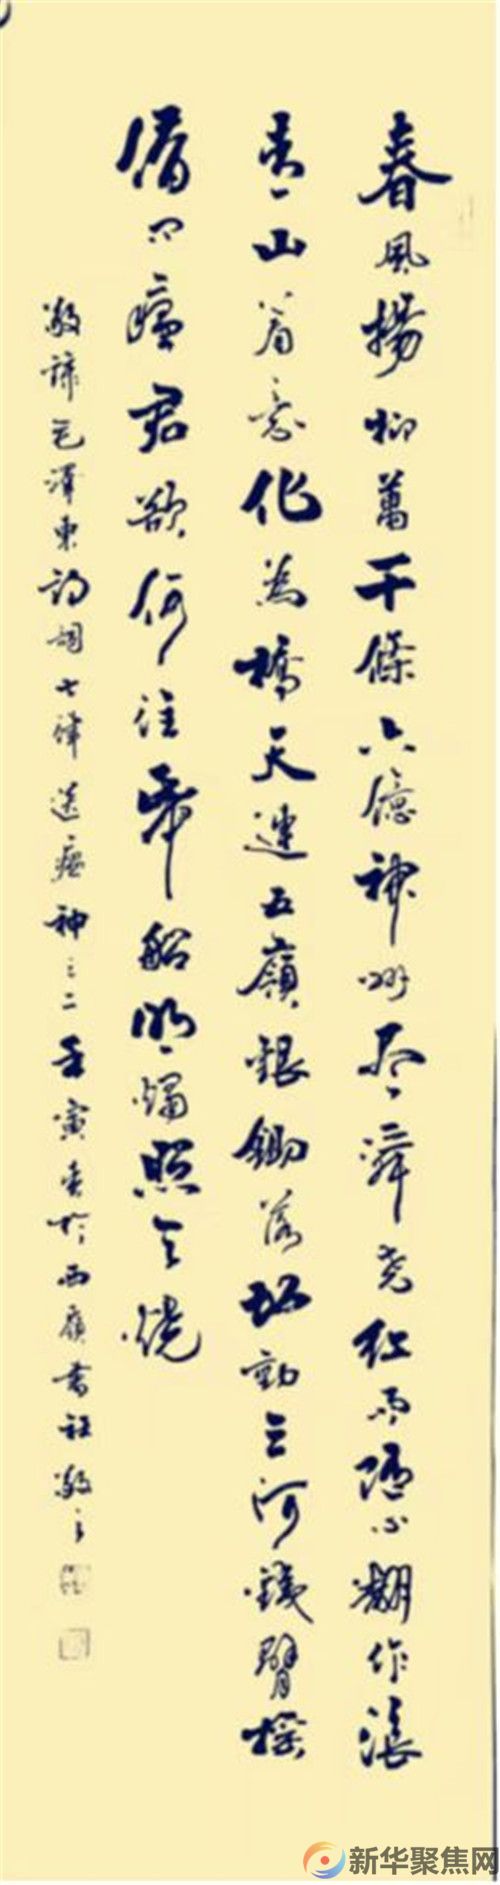 春風揚柳萬千條六億神州尽舜尧红雨隨心翻作浪
青山着意化為橋天連五嶺銀鋤落地動三河鐵臂搖
借问瘟君欲何往帋船明燭照天燒
敬錄毛澤東詩詞七律送瘟神之二壬寅於西嶺書社敬之
新华聚焦网